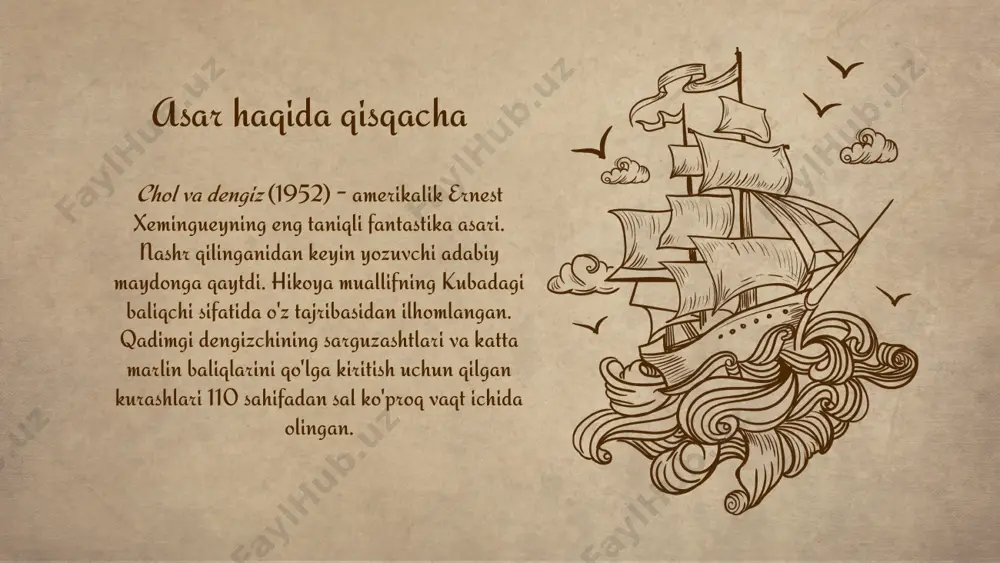 Asar haqida qisqacha
Chol va dengiz (1952) - amerikalik Ernest
Xemingueyning eng taniqli fantastika asari.
Nashr qilinganidan keyin yozuvchi adabiy
maydonga qaytdi. Hikoya muallifning Kubadagi
baliqchi sifatida o'z tajribasidan ilhomlangan.
Qadimgi dengizchining sarguzashtlari va katta
marlin baliqlarini qo'lga kiritish uchun qilgan
kurashlari 110 sahifadan sal ko'proq vaqt ichida
olingan.
FaylHub.uz
FaylHub.uz
FaylHub.uz
FaylHub.uz
FaylHub.uz
FaylHub.uz